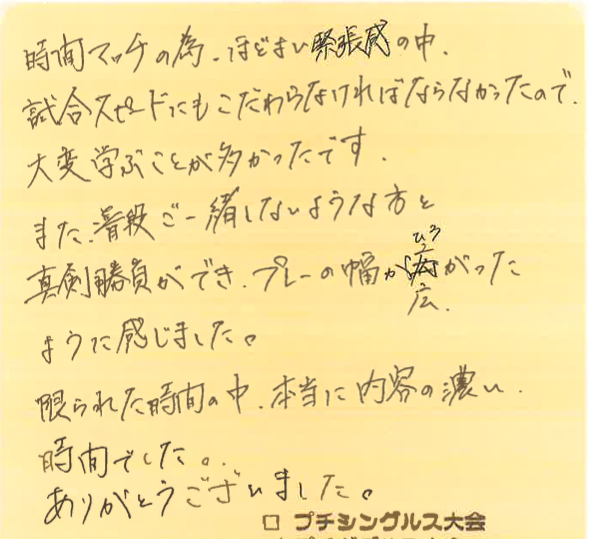 時間マッチの為、ほどよい緊張感の中、
試合スピードにもこだわらなければならなかったので、
大変学ぶことが多かったです。
また、普段ご一緒しないような方と
真剣勝負ができ、プレーの幅が広がった
ひろ
広
ように感じました。
限られた時間の中、本当に内容の濃い、
時間でした。
ありがとうございました。
□ プチシングルス大会